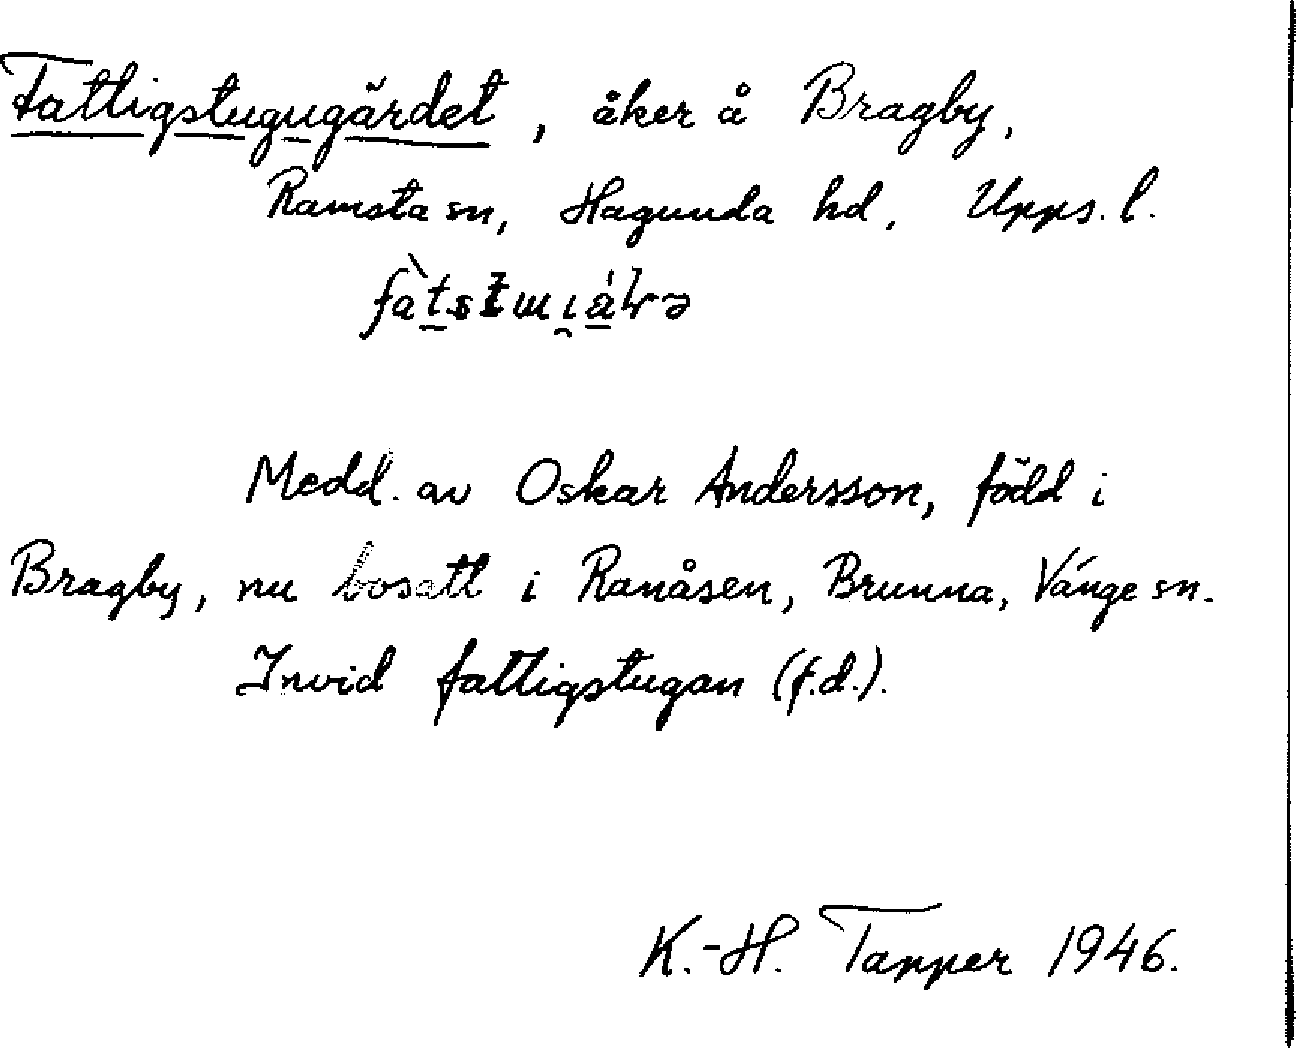 Fattigstugugärdet, åker å Bragby,
Ramsta sn, Hagunda hd, Upps. l.
Medd. av Oskar Andersson, född i
Bragby, nu bosatt i Ranåsen, Brunna, Vänge sn.
Invid fattigstugan (f.d.).
K.-H. Tapper 1946.